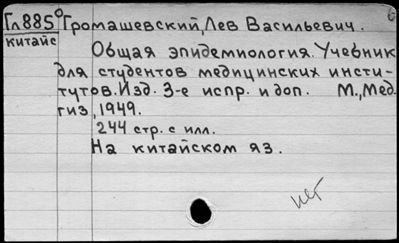 Гл885° Громашевский, Лев Васильевич.
китайс
Общая эпидемиология. Учебник
для студентов медицинских инсти-
тутов. Изд. 3-е испр. и доп. М., Мед-
гиз, 1949.
244 стр. с илл.
На китайском яз.